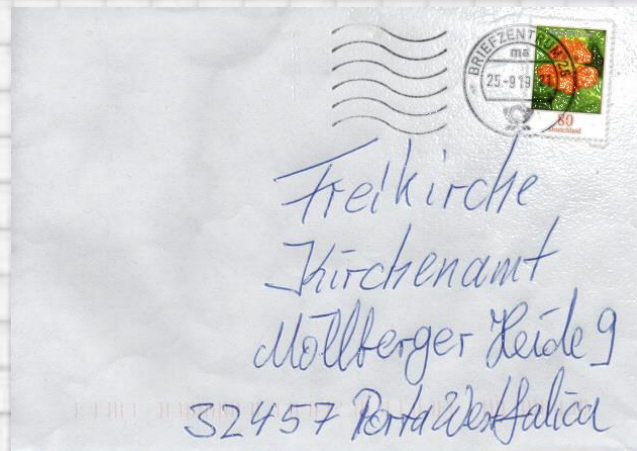 BRIEFZENTRUM 26
ma
25-9.19
80
Deutschland
Freikirche
Kirchenamt
Möllberger Heide 9
32457 Porta Westfalica